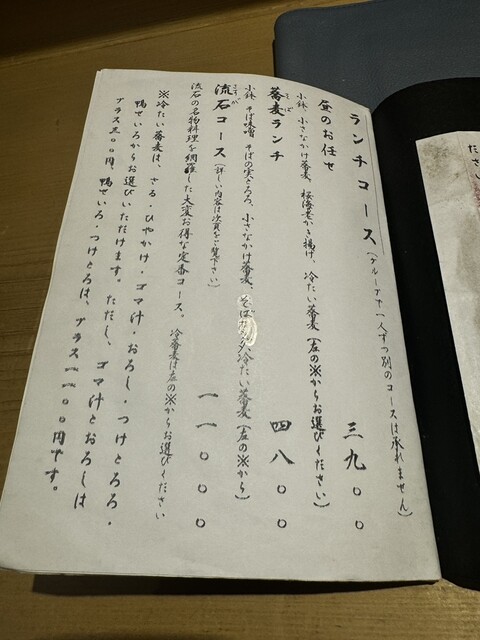 ランチコース（グループで一人ずつ別のコースは承れません）
昼のお任せ 三九〇〇
小鉢、小さなかけ蕎麦、桜海老かき揚げ、冷たい蕎麦（左の※からお選びください）
蕎麦ランチ 四八〇〇
そば
小鉢、そば味噌、そばの実とろろ、小さなかけ蕎麦、そば 冷たい蕎麦（左の※から）
流石コース（詳しい内容は次頁をご覧下さい） 一一〇〇〇
さすが
流石の名物料理を網羅した大変お得な定番コース。 冷蕎麦は左の※からお選びください
※冷たい蕎麦は、ざる・ひやかけ・ゴマ汁・おろし・つけとろろ・
鴨せいろからお選びいただけます。ただし、ゴマ汁とおろしは
プラス三〇〇円、鴨せいろ・つけとろは、プラス一一〇〇円です。
ださい